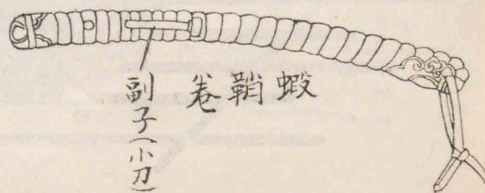 蝦鞘巻
副子(小刀)